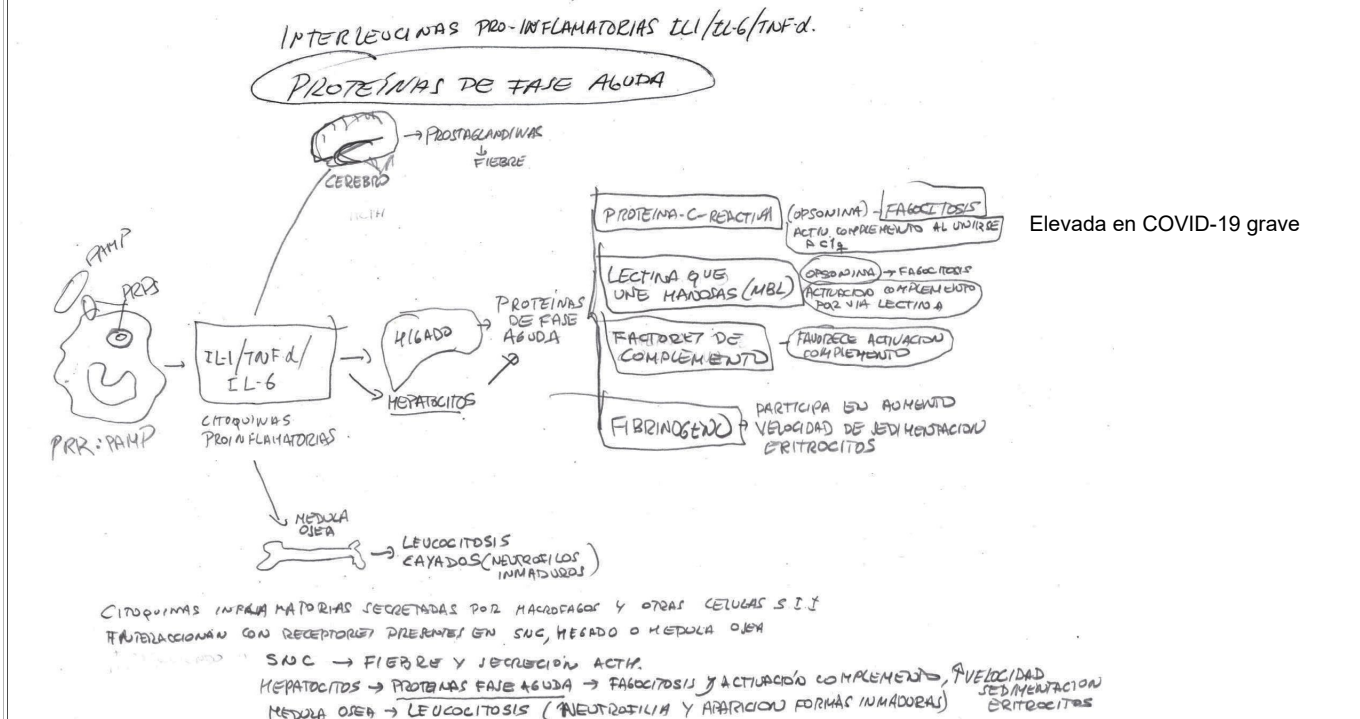 INTERLEUCINAS PRO-INFLAMATORIAS IL1/IL-6/TNF-α.
PROTEÍNAS DE FASE AGUDA
→ PROSTAGLANDINAS
↓
FIEBRE
CEREBRO
ACTH
PAMP
PRRs
PRR:PAMP
IL-1/TNFα/
IL-6
CITOQUINAS
PROINFLAMATORIAS.
HIGADO
HEPATOCITOS
PROTEÍNAS
DE FASE
AGUDA
PROTEINA-C-REACTIVA
(OPSONINA) - FAGOCITOSIS
ACTIV. COMPLEMENTO AL UNIRSE
A C1q
Elevada en COVID-19 grave
LECTINA QUE
UNE MANOSAS (MBL)
OPSONINA → FAGOCITOSIS
ACTIVACION COMPLEMENTO
POR VIA LECTINA
FACTORES DE
COMPLEMENTO
FAVORECE ACTIVACION
COMPLEMENTO
FIBRINOGENO
PARTICIPA EN AUMENTO
VELOCIDAD DE SEDIMENTACION
ERITROCITOS
MEDULA
OSEA
→ LEUCOCITOSIS
CAYADOS (NEUTROFILOS
INMADUROS)
CITOQUINAS INFLAMATORIAS SECRETADAS POR MACROFAGOS Y OTRAS CELULAS S.I.I
INTERACCIONAN CON RECEPTORES PRESENTES EN SNC, HIGADO O MEDULA OSEA
SNC → FIEBRE Y SECRECIÓN ACTH.
HEPATOCITOS → PROTEINAS FASE AGUDA → FAGOCITOSIS Y ACTIVACIÓN COMPLEMENTO, ↑VELOCIDAD
SEDIMENTACION
ERITROCITOS
MEDULA OSEA → LEUCOCITOSIS (NEUTROFILIA Y APARICION FORMAS INMADURAS)